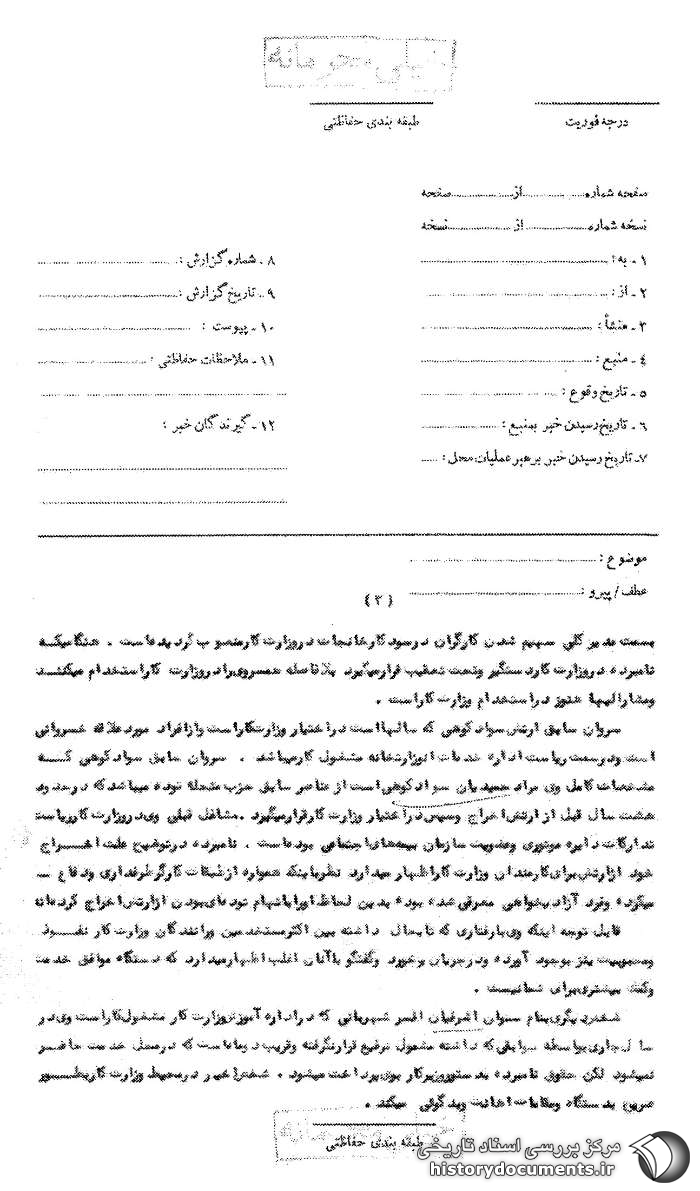 خیلی محرمانه
درجه فوریت
طبقه بندی حفاظتی
صفحه شماره ........ از ........ صفحه
نسخه شماره ........ از ........ نسخه
۱ - به :
۲ - از :
۳ - منشأ :
۴ - منبع :
۵ - تاریخ وقوع :
۶ - تاریخ رسیدن خبر بمنبع :
۷- تاریخ رسیدن خبر برهبر عملیات محل :
۸ - شماره گزارش :
۹ - تاریخ گزارش :
۱۰ - پیوست :
۱۱ - ملاحظات حفاظتی :
۱۲ - گیرندگان خبر :
موضوع :
عطف / پیرو :
(۳)
بسمت مدیر کلی سهیم شدن کارگران درسود کارخانجات دروزارت کارمنصوب گردیده است . هنگامیکه
نامبرده دروزارت کار دستگیر وتحت تعقیب قرارمیگیرد بلافاصله همسروی رادروزارت کاراستخدام میکنند
ومشارالیها هنوز دراستخدام وزارت کاراست .
سروان سابق ارتش سوادکوهی که سالهااست دراختیار وزارتکاراست وازافراد موردعلاقه خسروانی
است ودرسمت ریاست اداره خدمات انوزارتخانه مشغول کارمیباشد . سروان سابق سوادکوهی کـه
مشخصات کامل وی مراد حمیدیان سوادکوهی است از عناصر سابق حزب منحله توده میباشد که درحدود
هشت سال قبل از ارتش اخراج وسپس دراختیار وزارت کارقرارمیگیرد . مشاغل قبلی وی دروزارت کارریاست
تدارکات دایره موتوری وعضویت سازمان بیمه های اجتماعی بوده است . نامبرده درتوضیح علت اخـراج
خود ازارتش برای کارمندان وزارت کاراظهار میدارد نظرباینکه همواره ازطبقات کارگرطرفداری ودفاع
میکرده وفرد آزادیخواهی معرفی شده بوده بدین لحاظ اورا باتهام توده ای بودن ازارتش اخراج کرده اند
قابل توجه اینکه وی بارفتاری که تابحال داشته بین اکثرمستخدمین ورانندگان وزارت کار نفـوذ
ومحبوبیت بنز بوجود آورده ودرجریان برخورد وگفتگو باآنان اغلب اظهارمیدارد که دستگاه موافق خدمت
وکمک بیشتری برای شمانیست .
شخص دیگری بنام سروان اشرفیان افسر شهربانی که دراداره آموزش وزارت کار مشغول کاراست وی در
سال جاری بواسطه سوابقی که داشته مشمول ترفیع قرارنگرفته وقریب دوماه است که درمحل خدمت حاضـر
نمیشود لکن حقوق نامبرده بدستوروزیرکار بوی پرداخت میشود . شخص اخیر درمحیط وزارت کاربطـور
صریح بدستگاه ومقامات اهانت وبدگوئی میکند .
طبقه بندی حفاظتی
خیلی محرمانه
مرکز بررسی اسناد تاریخی
historydocuments.ir